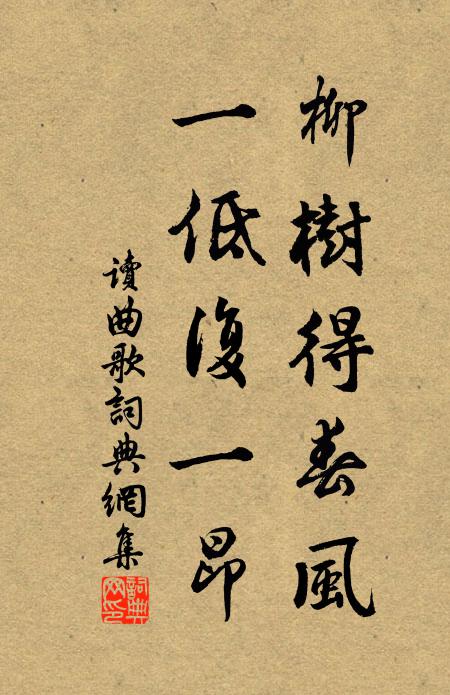 柳樹得春風
一低復一昂
讀曲歌詞典網集
詞典網印